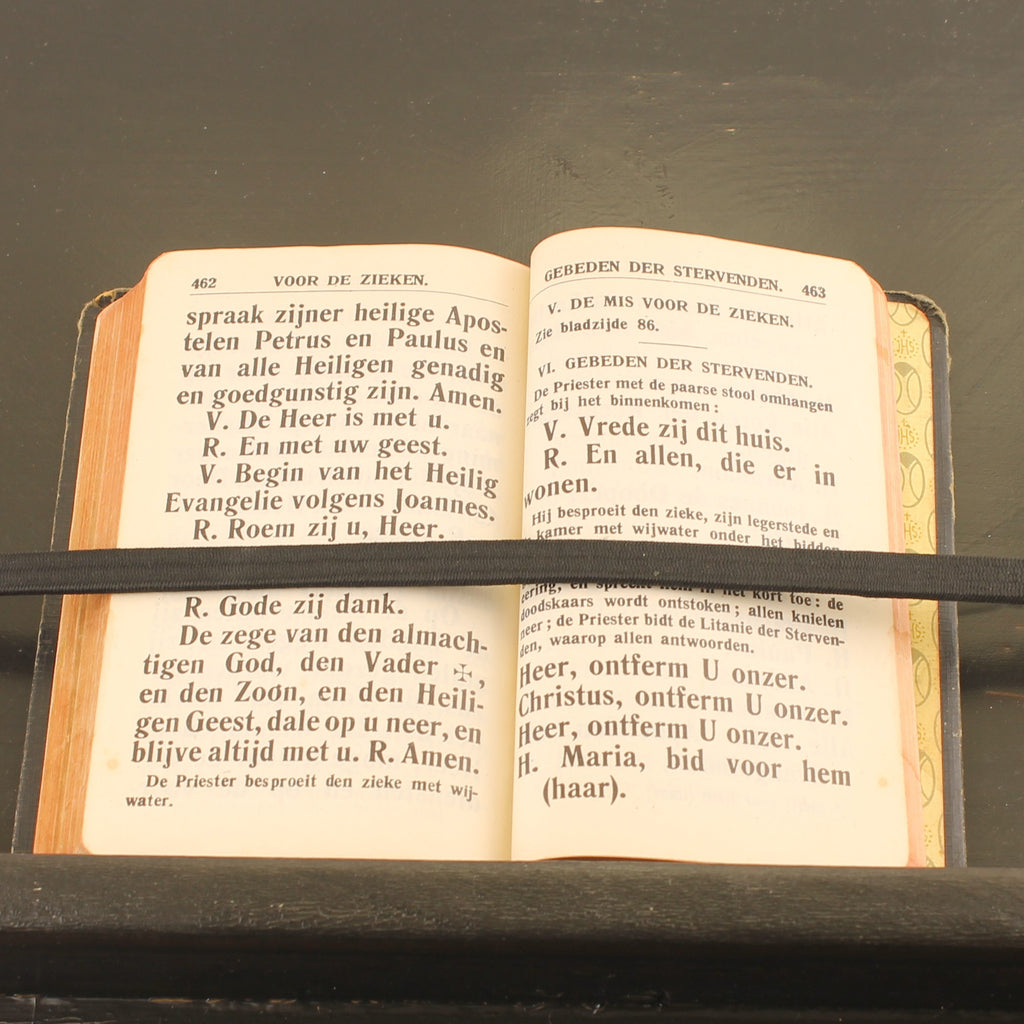 462 VOOR DE ZIEKEN.
spraak zijner heilige Apos-
telen Petrus en Paulus en
van alle Heiligen genadig
en goedgunstig zijn. Amen.
V. De Heer is met u.
R. En met uw geest.
V. Begin van het Heilig
Evangelie volgens Joannes.
R. Roem zij u, Heer.
R. Gode zij dank.
De zege van den almach-
tigen God, den Vader ✠,
en den Zoon, en den Heili-
gen Geest, dale op u neer, en
blijve altijd met u. R. Amen.
De Priester besproeit den zieke met wij-
water.
GEBEDEN DER STERVENDEN. 463
V. DE MIS VOOR DE ZIEKEN.
Zie bladzijde 86.
VI. GEBEDEN DER STERVENDEN.
De Priester met de paarse stool omhangen
zegt bij het binnenkomen:
V. Vrede zij dit huis.
R. En allen, die er in
wonen.
Hij besproeit den zieke, zijn legerstede en
kamer met wijwater onder het bidden
en spreekt hem in het kort toe: de
doodskaars wordt ontstoken; allen knielen
neer; de Priester bidt de Litanie der Sterven-
den, waarop allen antwoorden.
Heer, ontferm U onzer.
Christus, ontferm U onzer.
Heer, ontferm U onzer.
H. Maria, bid voor hem
(haar).